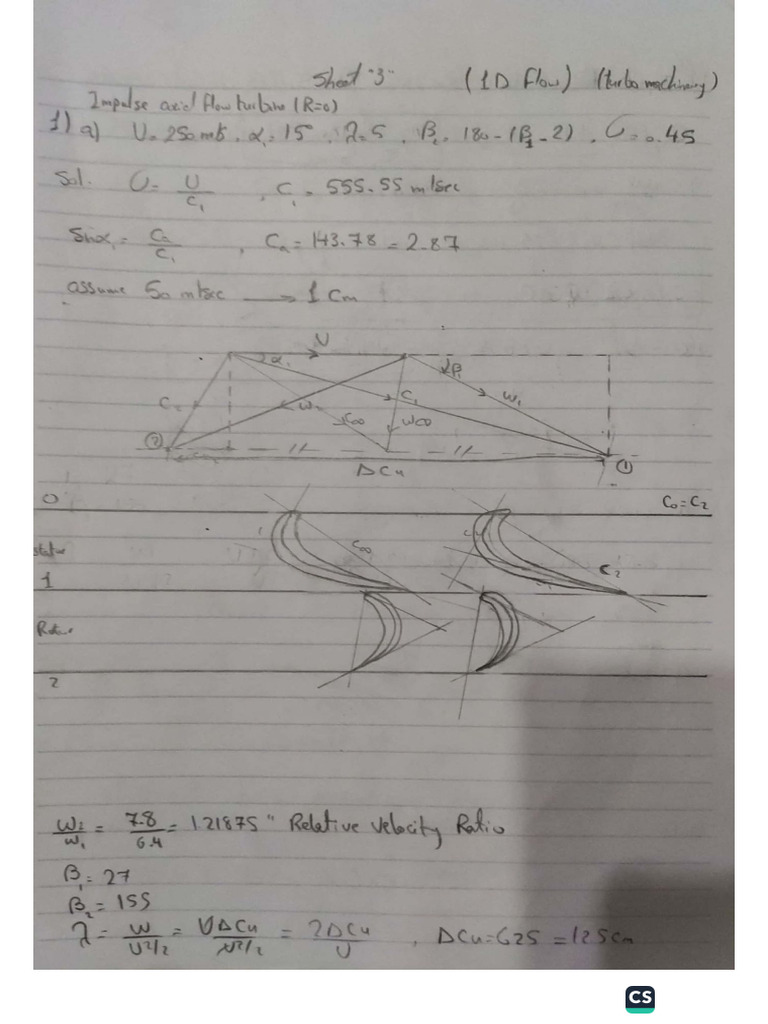 Sheet "3" (1D Flow) (turbomachinery)
Impulse axial flow turbine (R=0)
1) a) U= 250 m/s, α₁= 15°, λ=5, β₂= 180-(β₁-2), U= 0.45
Sol. U= U/C₁, C₁= 555.55 m/sec
Sinα₁= Ca/C₁, Ca= 143.78 = 2.87
assume 50 m/sec → 1 Cm
U
α₁ β₁
C₂ W₂ C∞ C₁ W∞ W₁
② ①
ΔCu
0 C₀=C₂
C∞
stator C₂
1
Rotor
2
W₂/W₁ = 7.8/6.4 = 1.21875 " Relative Velocity Ratio
β₁= 27
β₂= 155
λ= W/U²/2 = UΔCu/U²/2 = 2ΔCu/U, ΔCu=625 =12.5cm
CS